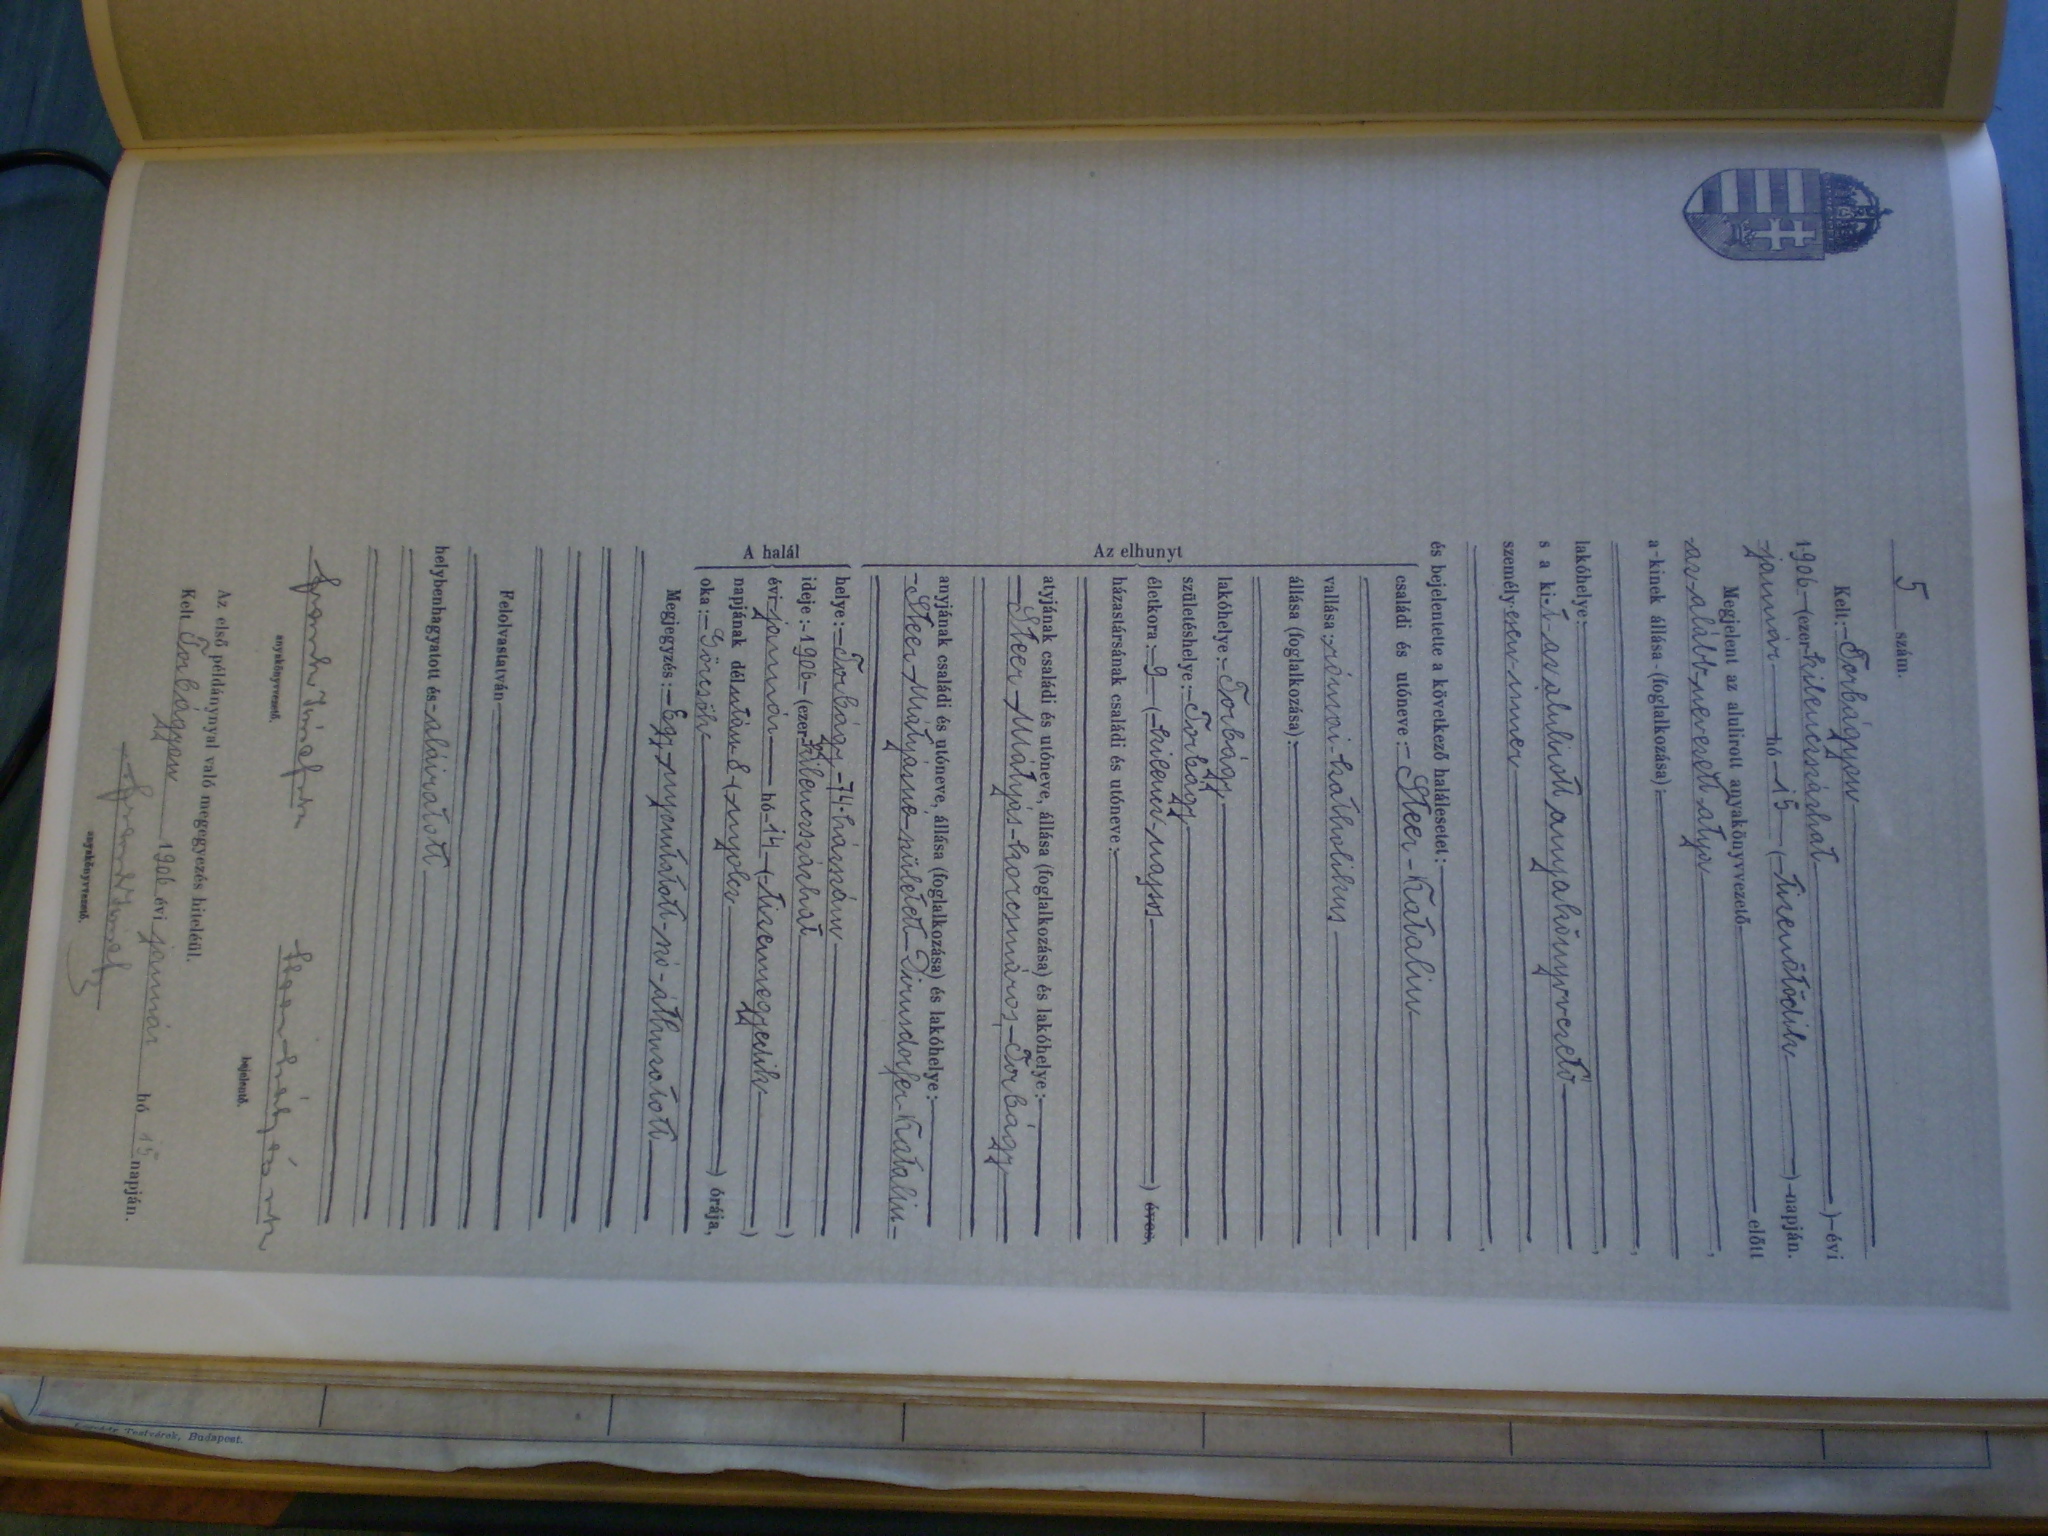 5 szám.
Kelt: Torbágyon
1906 (ezerkilencszázhat) évi
január hó 15 (tizenötödik) napján.
Megjelent az alulirott anyakönyvvezető előtt
az alább nevezett atya,
a kinek állása (foglalkozása):
lakóhelye:
s a ki t az alulirott anyakönyvvezető
személyesen ismer
és bejelentette a következő halálesetet:
Az elhunyt
családi és utóneve: Steer Katalin
vallása: római katholikus
állása (foglalkozása):
lakóhelye: Torbágy
születéshelye: Torbágy
életkora: 9 (kilenc napos) éves,
házastársának családi és utóneve:
atyjának családi és utóneve, állása (foglalkozása) és lakóhelye:
Steer Mátyás korcsmáros, Torbágy
anyjának családi és utóneve, állása (foglalkozása) és lakóhelye:
Steer Mátyásné született Katalin
A halál
helye: Torbágy 74 házszám
ideje: 1906 (ezerkilencszázhat)
évi január hó 14 (tizennegyedik)
napjának délután 8 (nyolc) órája,
oka: Görcsök
Megjegyzés: Egy nyomtatott szó áthuzatott
Felolvastatván
helybenhagyatott és aláiratott
anyakönyvvezető.
bejelentő.
Az első példánynyal való megegyezés hiteléül.
Kelt Torbágyon 1906 évi január hó 15 napján.
anyakönyvvezető.
Testvérek, Budapest.